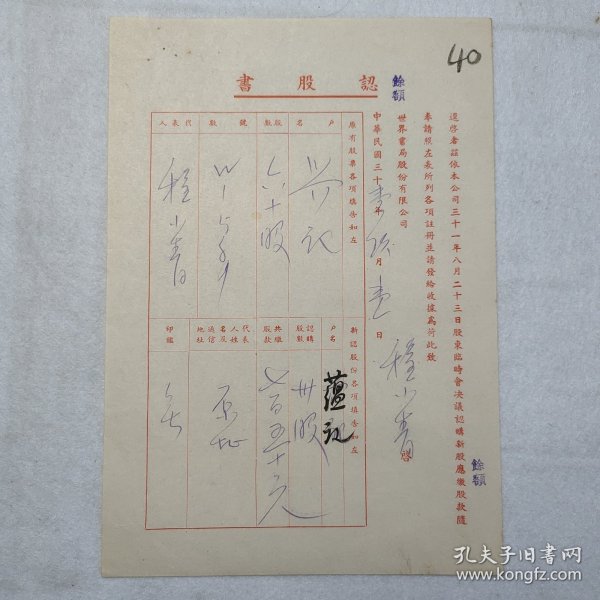 40
認股書
餘額
逕啓者茲依本公司三十一年八月二十三日股東臨時會决議認購新股應繳股款隨
餘額
奉請照左表所列各項註冊並請發給收據爲荷此致
世界書局股份有限公司
程小青
啓
中華民國三十壹年 月 壹 日
原有股票各項填告如左
戶名
記
股數
六十股
號數
代表人
程小青
新認股份各項填告如左
戶名
蘊記
認購股數
卅股
共繳股款
七百五十元
代表人姓名及通信地址
原址
印鑑
孔夫子旧书网
www.kongfz.com